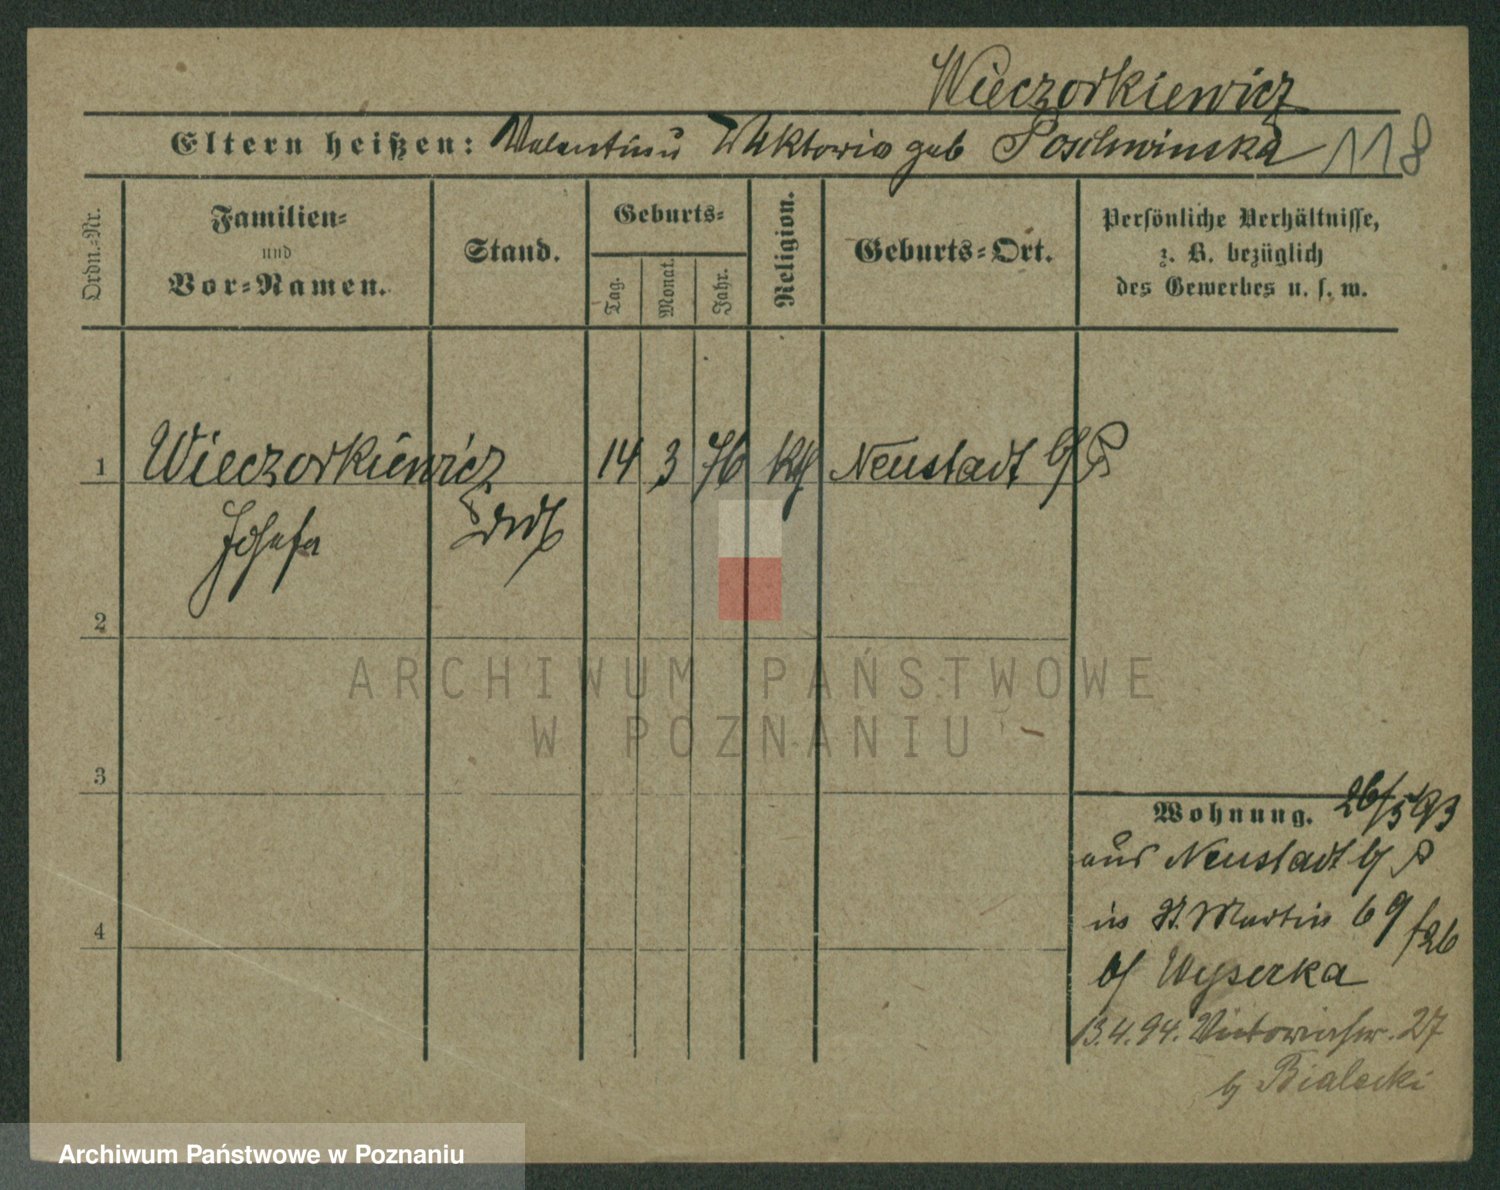 Wieczorkiewicz
Eltern heißen: Valentin u Wiktoria geb Poschwinska 118
Ordn.=Nr.
Familien=
und
Vor=Namen.
Stand.
Geburts=
Tag.
Monat.
Jahr.
Religion.
Geburts=Ort.
Persönliche Verhältnisse,
z. B. bezüglich
des Gewerbes u. s. w.
1 Wieczorkiewicz 14 3 76 kth Neustadt b/P
Josefa
2
3
4
Wohnung. 26/5 93
aus Neustadt b/P
in St. Martin 69 /26
b/
13.4.94. Victoriastr. 27
b/ Bialecki
ARCHIWUM PAŃSTWOWE
W POZNANIU
Archiwum Państwowe w Poznaniu